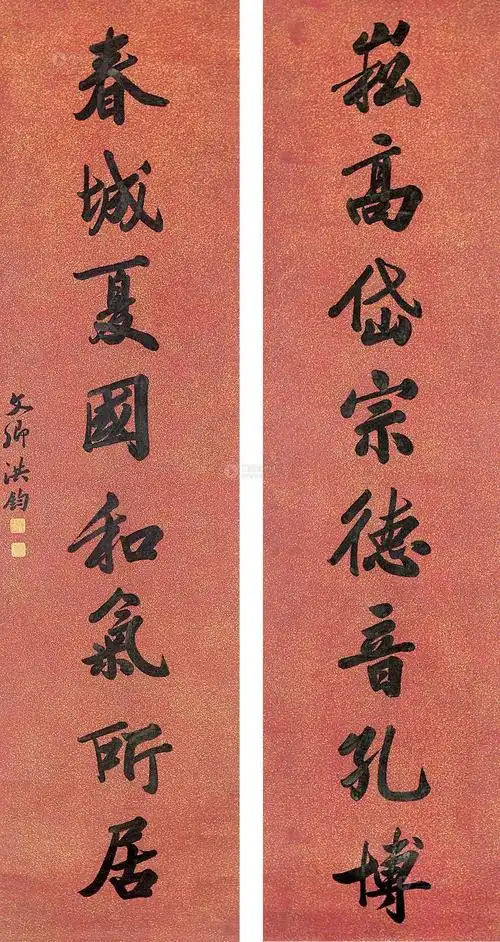 崧高岱宗德音孔博
春城夏國和氣所居
文卿洪鈞